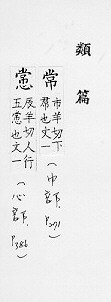 類篇
常市羊切下
帬也文一
(中部.P.271)
戃辰羊切人行
五常也文一
(心部.P.386)